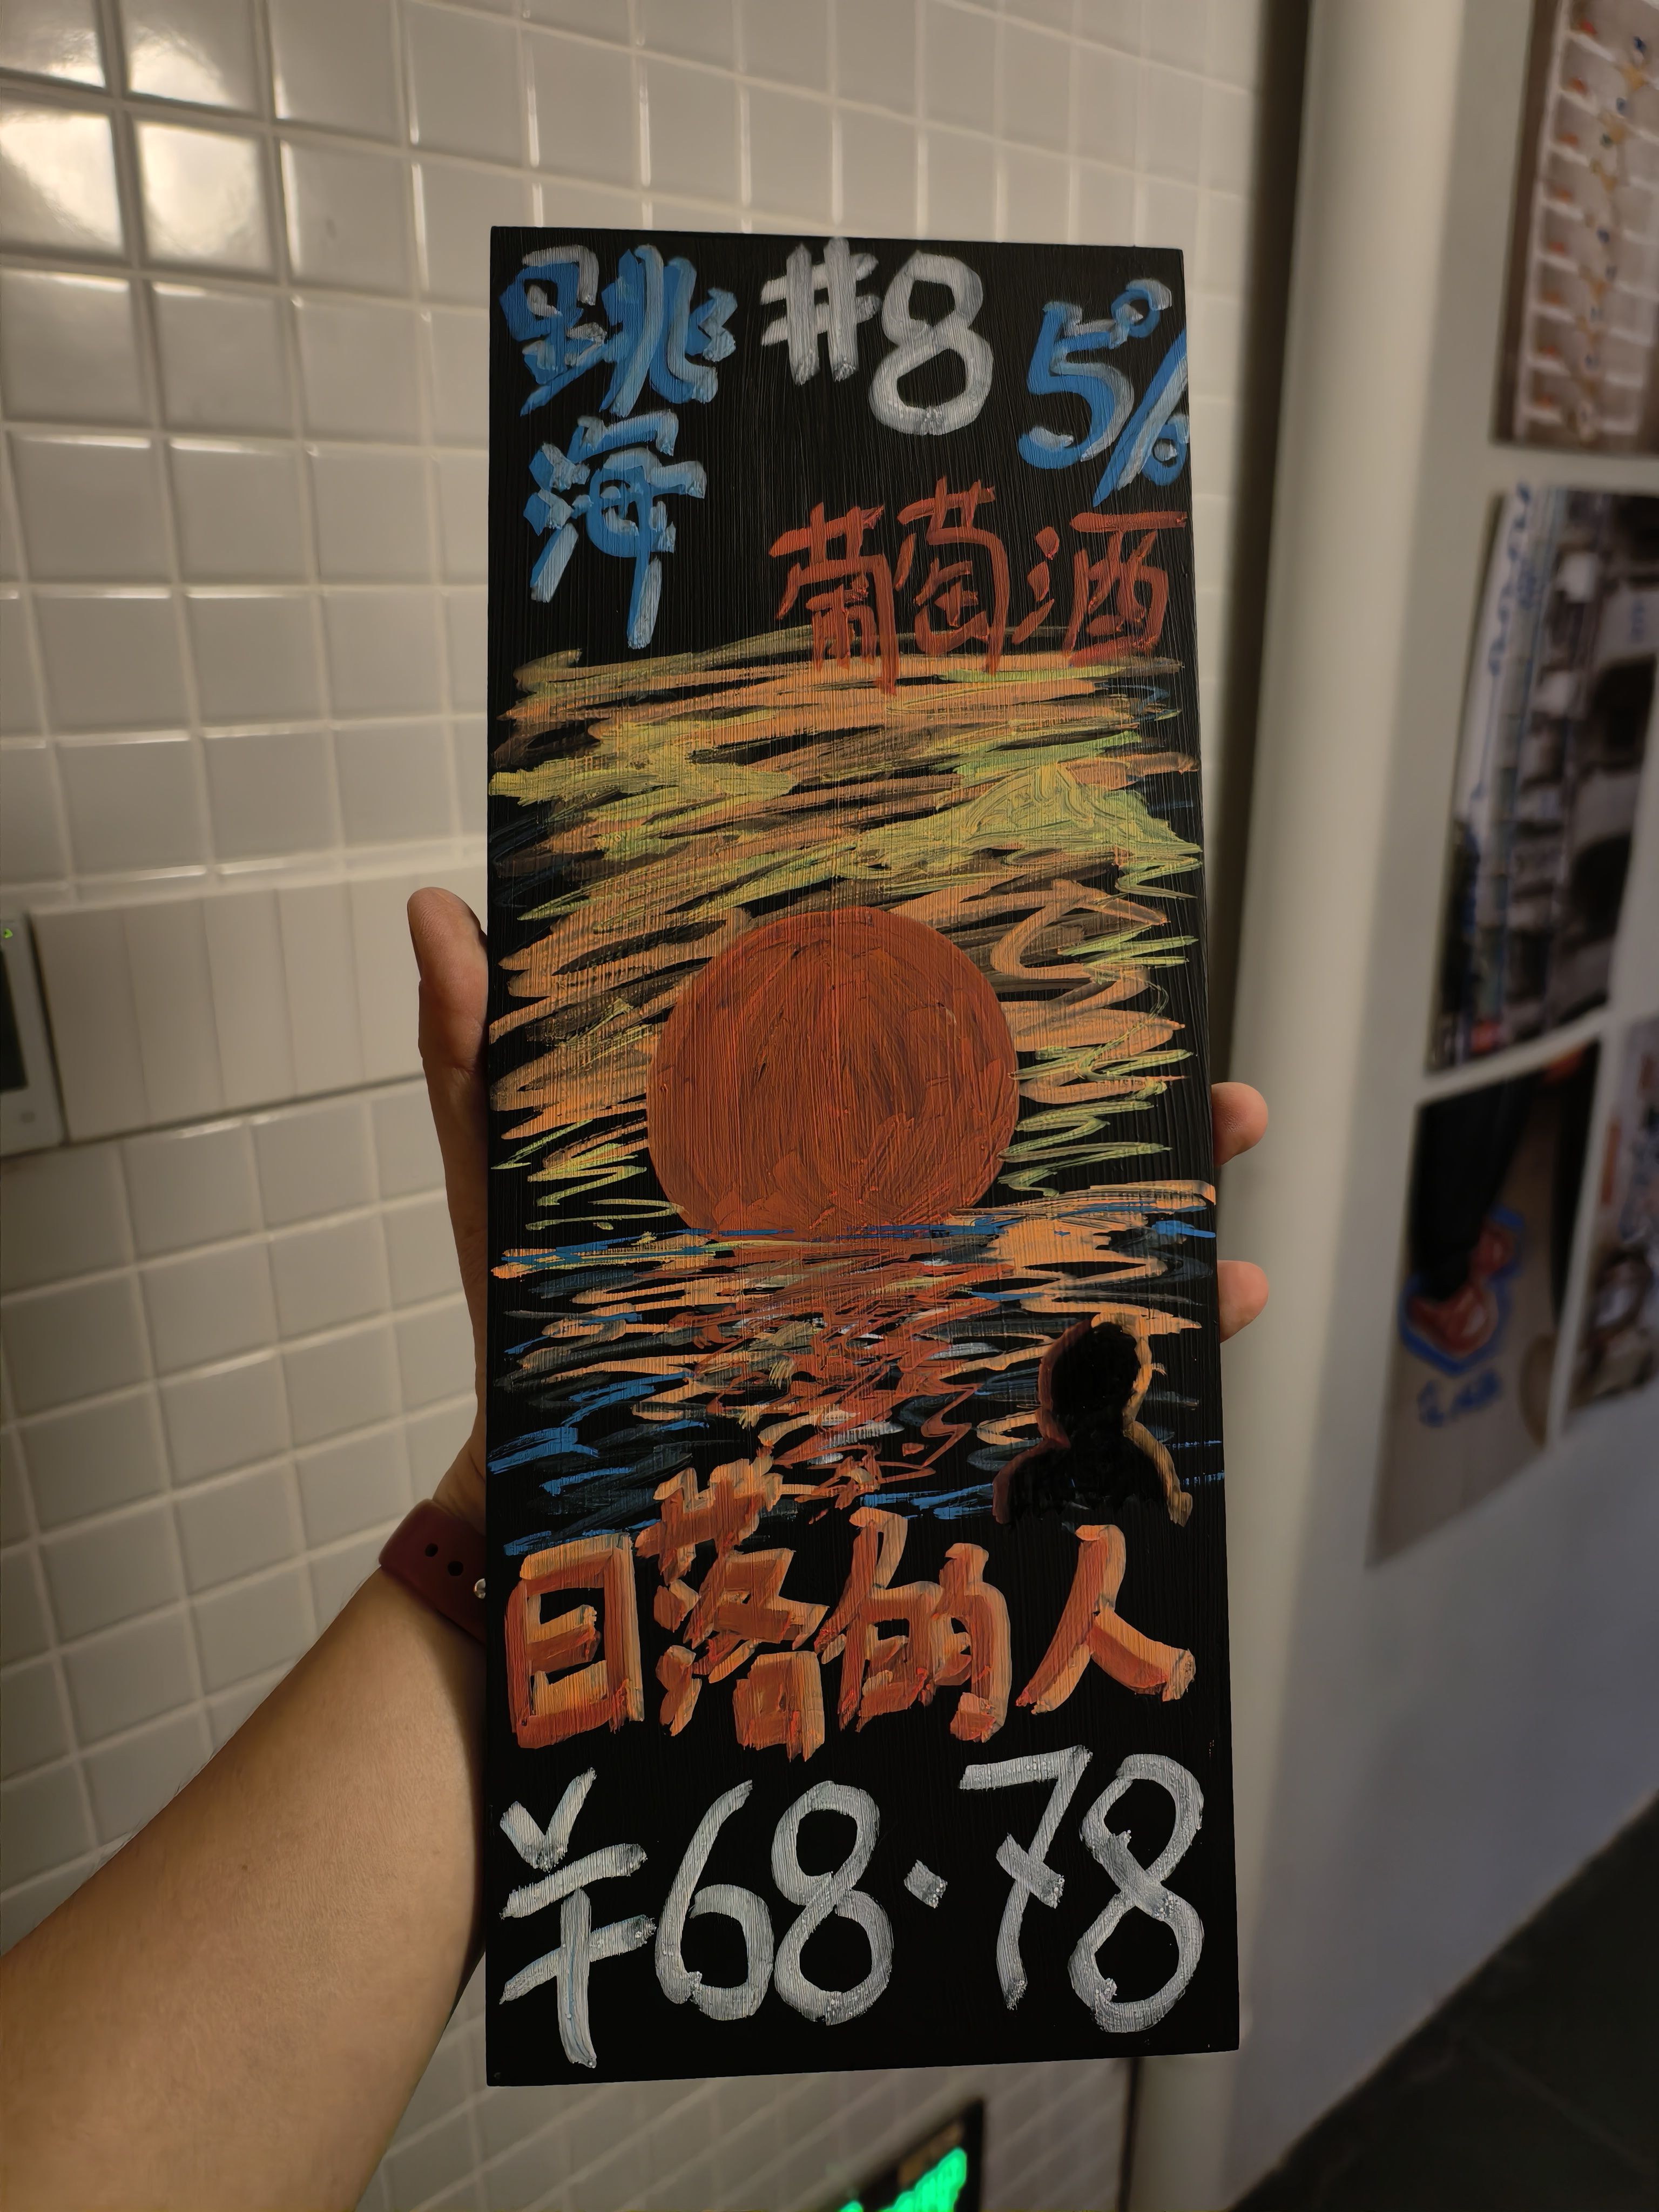 跳海 #8 5%
葡萄酒
日落的人
¥68.78